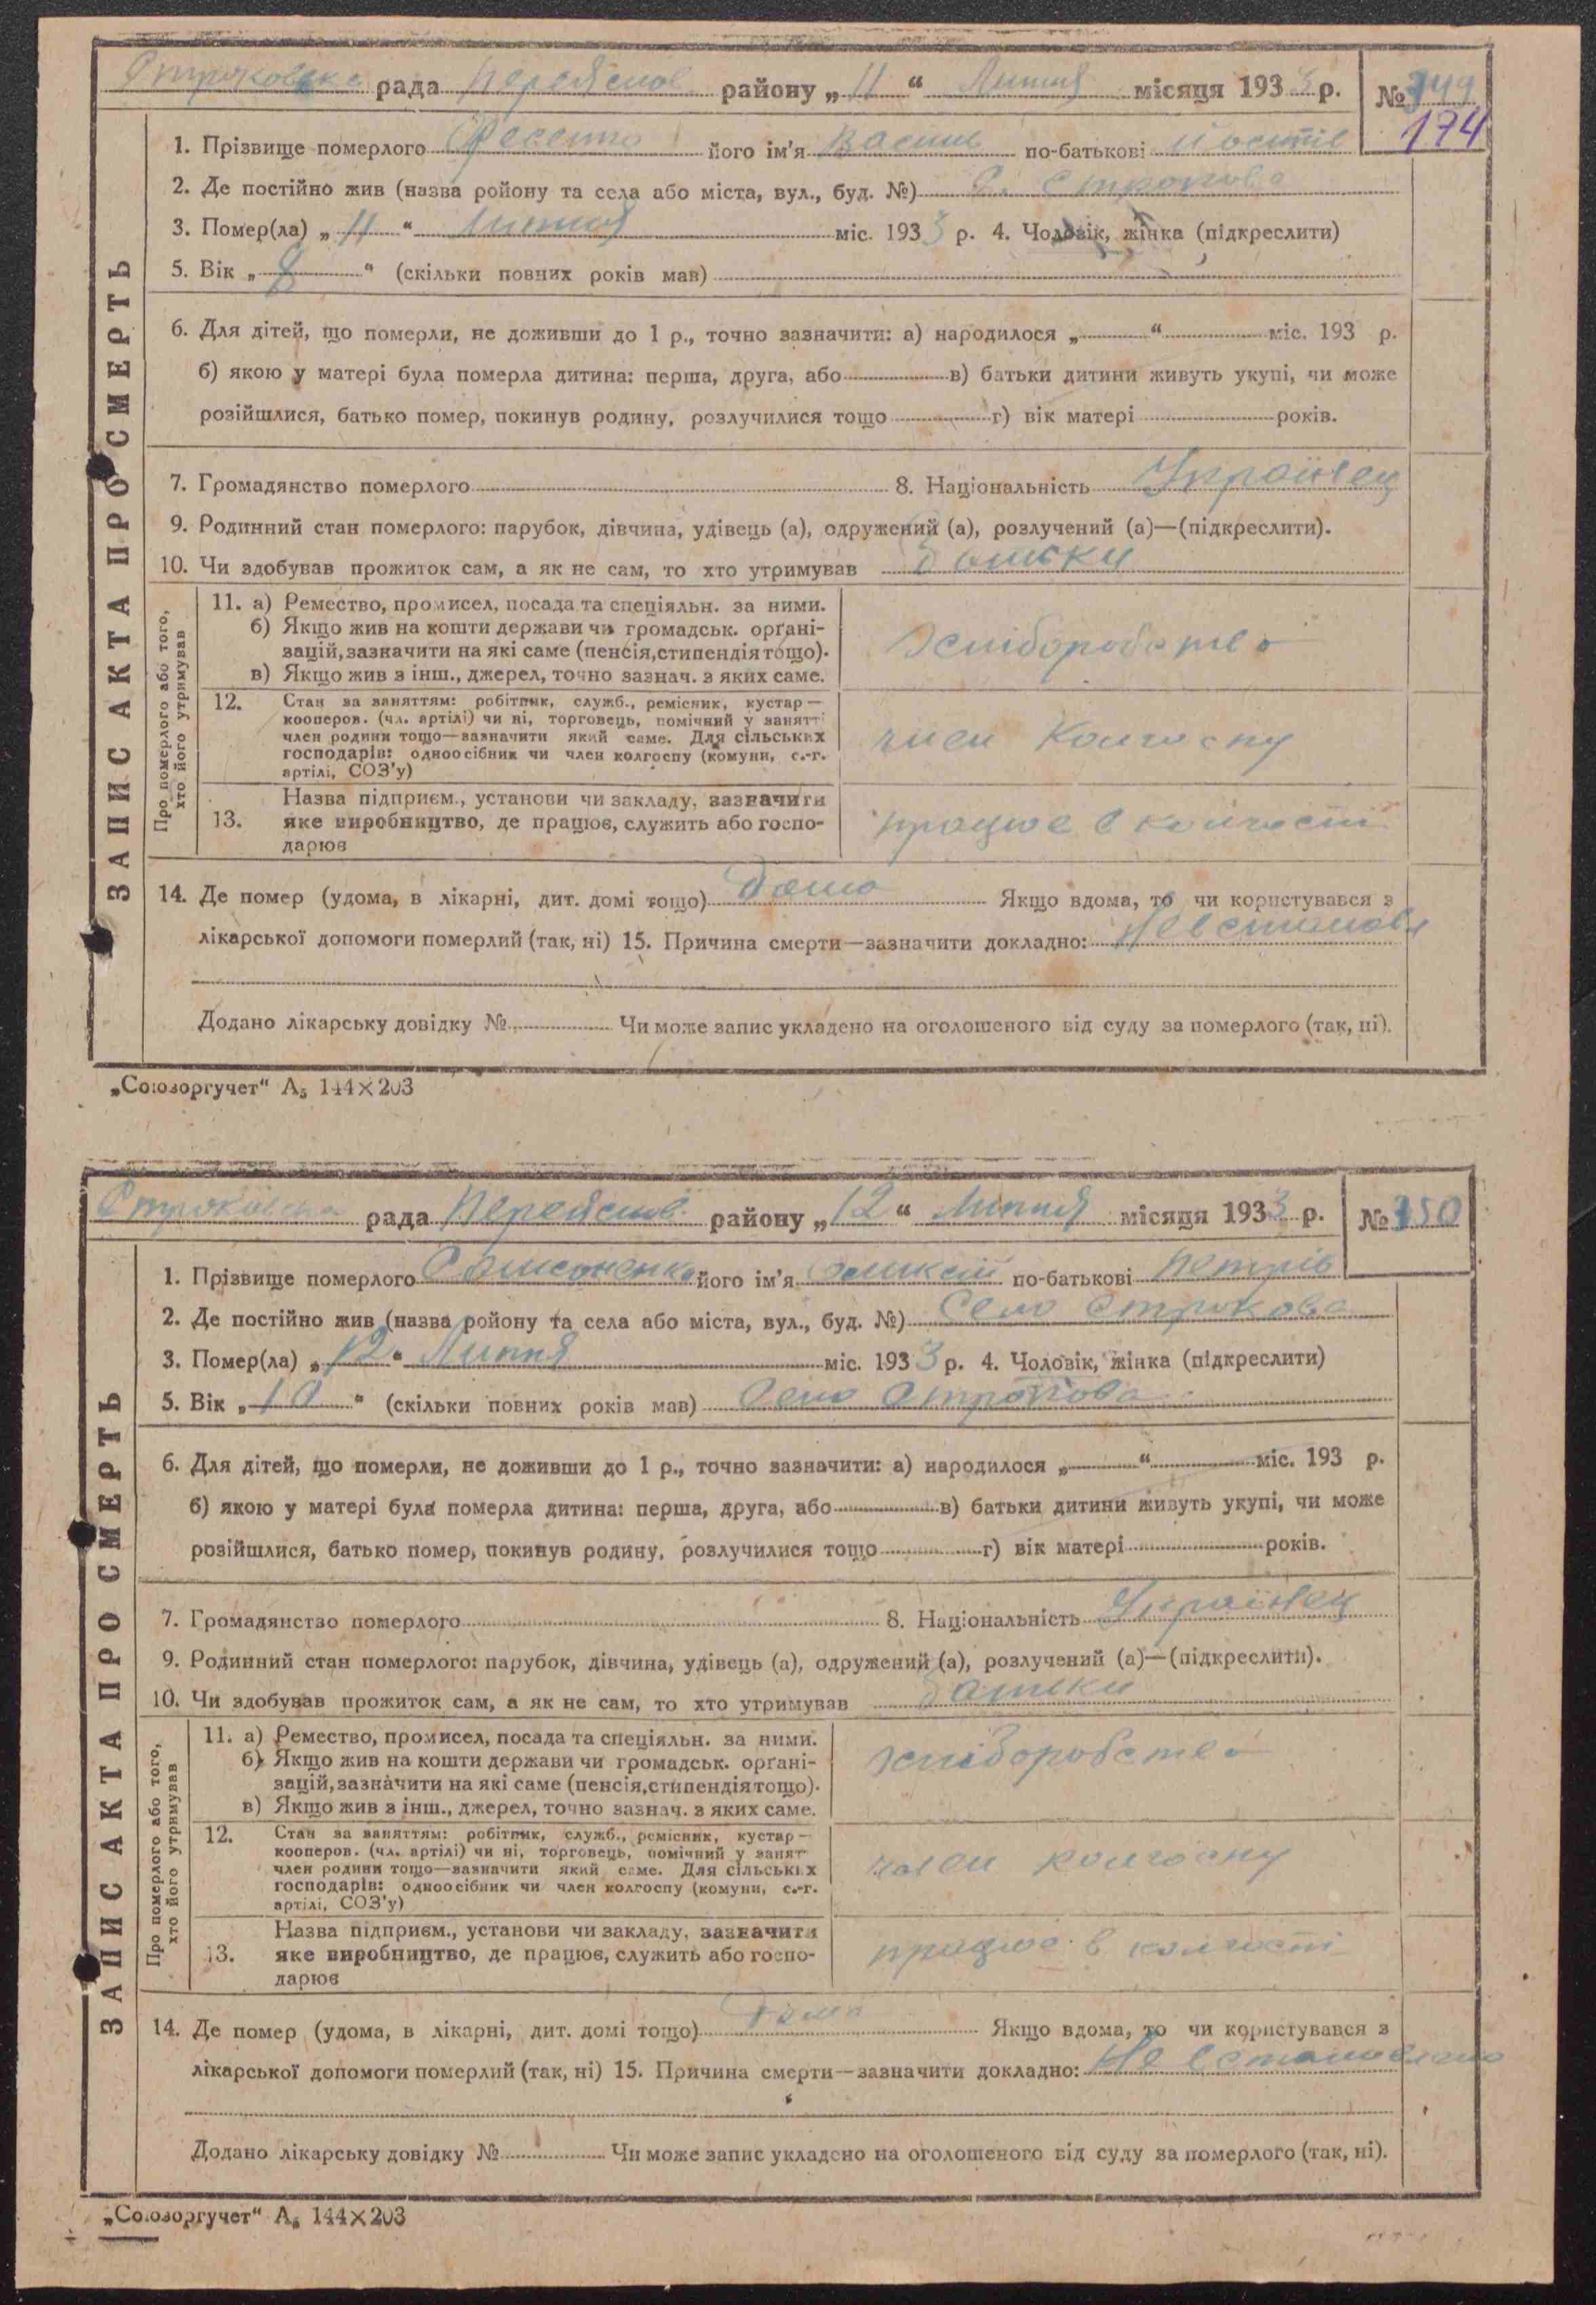 Строковска рада Переяслов району „11“ Липня місяця 1933 р. № 349
174
ЗАПИС АКТА ПРО СМЕРТЬ
1. Прізвище померлого його ім'я Василь по-батькові
2. Де постійно жив (назва ройону та села або міста, вул., буд. №) С. Строкова
3. Помер(ла) „11“ Липня міс. 1933 р. 4. Чоловік, жінка (підкреслити)
5. Вік „8“ (скільки повних років мав)
6. Для дітей, що померли, не доживши до 1 р., точно зазначити: а) народилося „ “ міс. 193 р.
б) якою у матері була померла дитина: перша, друга, або в) батьки дитини живуть укупі, чи може
розійшлися, батько помер, покинув родину, розлучилися тощо г) вік матері років.
7. Громадянство померлого 8. Національність Украінец
9. Родинний стан померлого: парубок, дівчина, удівець (а), одружений (а), розлучений (а)—(підкреслити).
10. Чи здобував прожиток сам, а як не сам, то хто утримував Батьки
Про померлого або того, хто його утримував
11. а) Ремество, промисел, посада та спеціяльн. за ними.
б) Якщо жив на кошти держави чи громадськ. орґані-
зацій, зазначити на які саме (пенсія, стипендія тощо).
в) Якщо жив з інш., джерел, точно зазнач. з яких саме.
хліборобство
12. Стан за заняттям: робітник, служб., ремісник, кустар—
кооперов. (чл. артілі) чи ні, торговець, помічний у занятті
член родини тощо—зазначити який саме. Для сільських
господарів: одноосібник чи член колгоспу (комуни, с.-г.
артілі, СОЗ'у)
член Колгоспу
13. Назва підприєм., установи чи закладу, зазначити
яке виробництво, де працює, служить або госпо-
дарює
працює в колгоспі
14. Де помер (удома, в лікарні, дит. домі тощо) дома Якщо вдома, то чи користувався з
лікарської допомоги померлий (так, ні) 15. Причина смерти—зазначити докладно:
Додано лікарську довідку № Чи може запис укладено на оголошеного від суду за померлого (так, ні).
„Союзоргучет“ А5 144×203
Строковска рада Переяслов району „12“ Липня місяця 1933 р. № 350
ЗАПИС АКТА ПРО СМЕРТЬ
1. Прізвище померлого Самсоненко його ім'я Олексій по-батькові Петрів
2. Де постійно жив (назва ройону та села або міста, вул., буд. №) Село Строкова
3. Помер(ла) „12“ Липня міс. 1933 р. 4. Чоловік, жінка (підкреслити)
5. Вік „10“ (скільки повних років мав) Село Строкова
6. Для дітей, що померли, не доживши до 1 р., точно зазначити: а) народилося „ “ міс. 193 р.
б) якою у матері була померла дитина: перша, друга, або в) батьки дитини живуть укупі, чи може
розійшлися, батько помер, покинув родину, розлучилися тощо г) вік матері років.
7. Громадянство померлого 8. Національність Украінец
9. Родинний стан померлого: парубок, дівчина, удівець (а), одружений (а), розлучений (а)—(підкреслити).
10. Чи здобував прожиток сам, а як не сам, то хто утримував батьки
Про померлого або того, хто його утримував
11. а) Ремество, промисел, посада та спеціяльн. за ними.
б) Якщо жив на кошти держави чи громадськ. орґані-
зацій, зазначити на які саме (пенсія, стипендія тощо).
в) Якщо жив з інш., джерел, точно зазнач. з яких саме.
хліборобство
12. Стан за заняттям: робітник, служб., ремісник, кустар—
кооперов. (чл. артілі) чи ні, торговець, помічний у занят
член родини тощо—зазначити який саме. Для сільських
господарів: одноосібник чи член колгоспу (комуни, с.-г.
артілі, СОЗ'у)
член колгоспу
13. Назва підприєм., установи чи закладу, зазначити
яке виробництво, де працює, служить або госпо-
дарює
працює в колгоспі
14. Де помер (удома, в лікарні, дит. домі тощо) дома Якщо вдома, то чи користувався з
лікарської допомоги померлий (так, ні) 15. Причина смерти—зазначити докладно: Не встановлено
Додано лікарську довідку № Чи може запис укладено на оголошеного від суду за померлого (так, ні).
„Союзоргучет“ А5 144×203